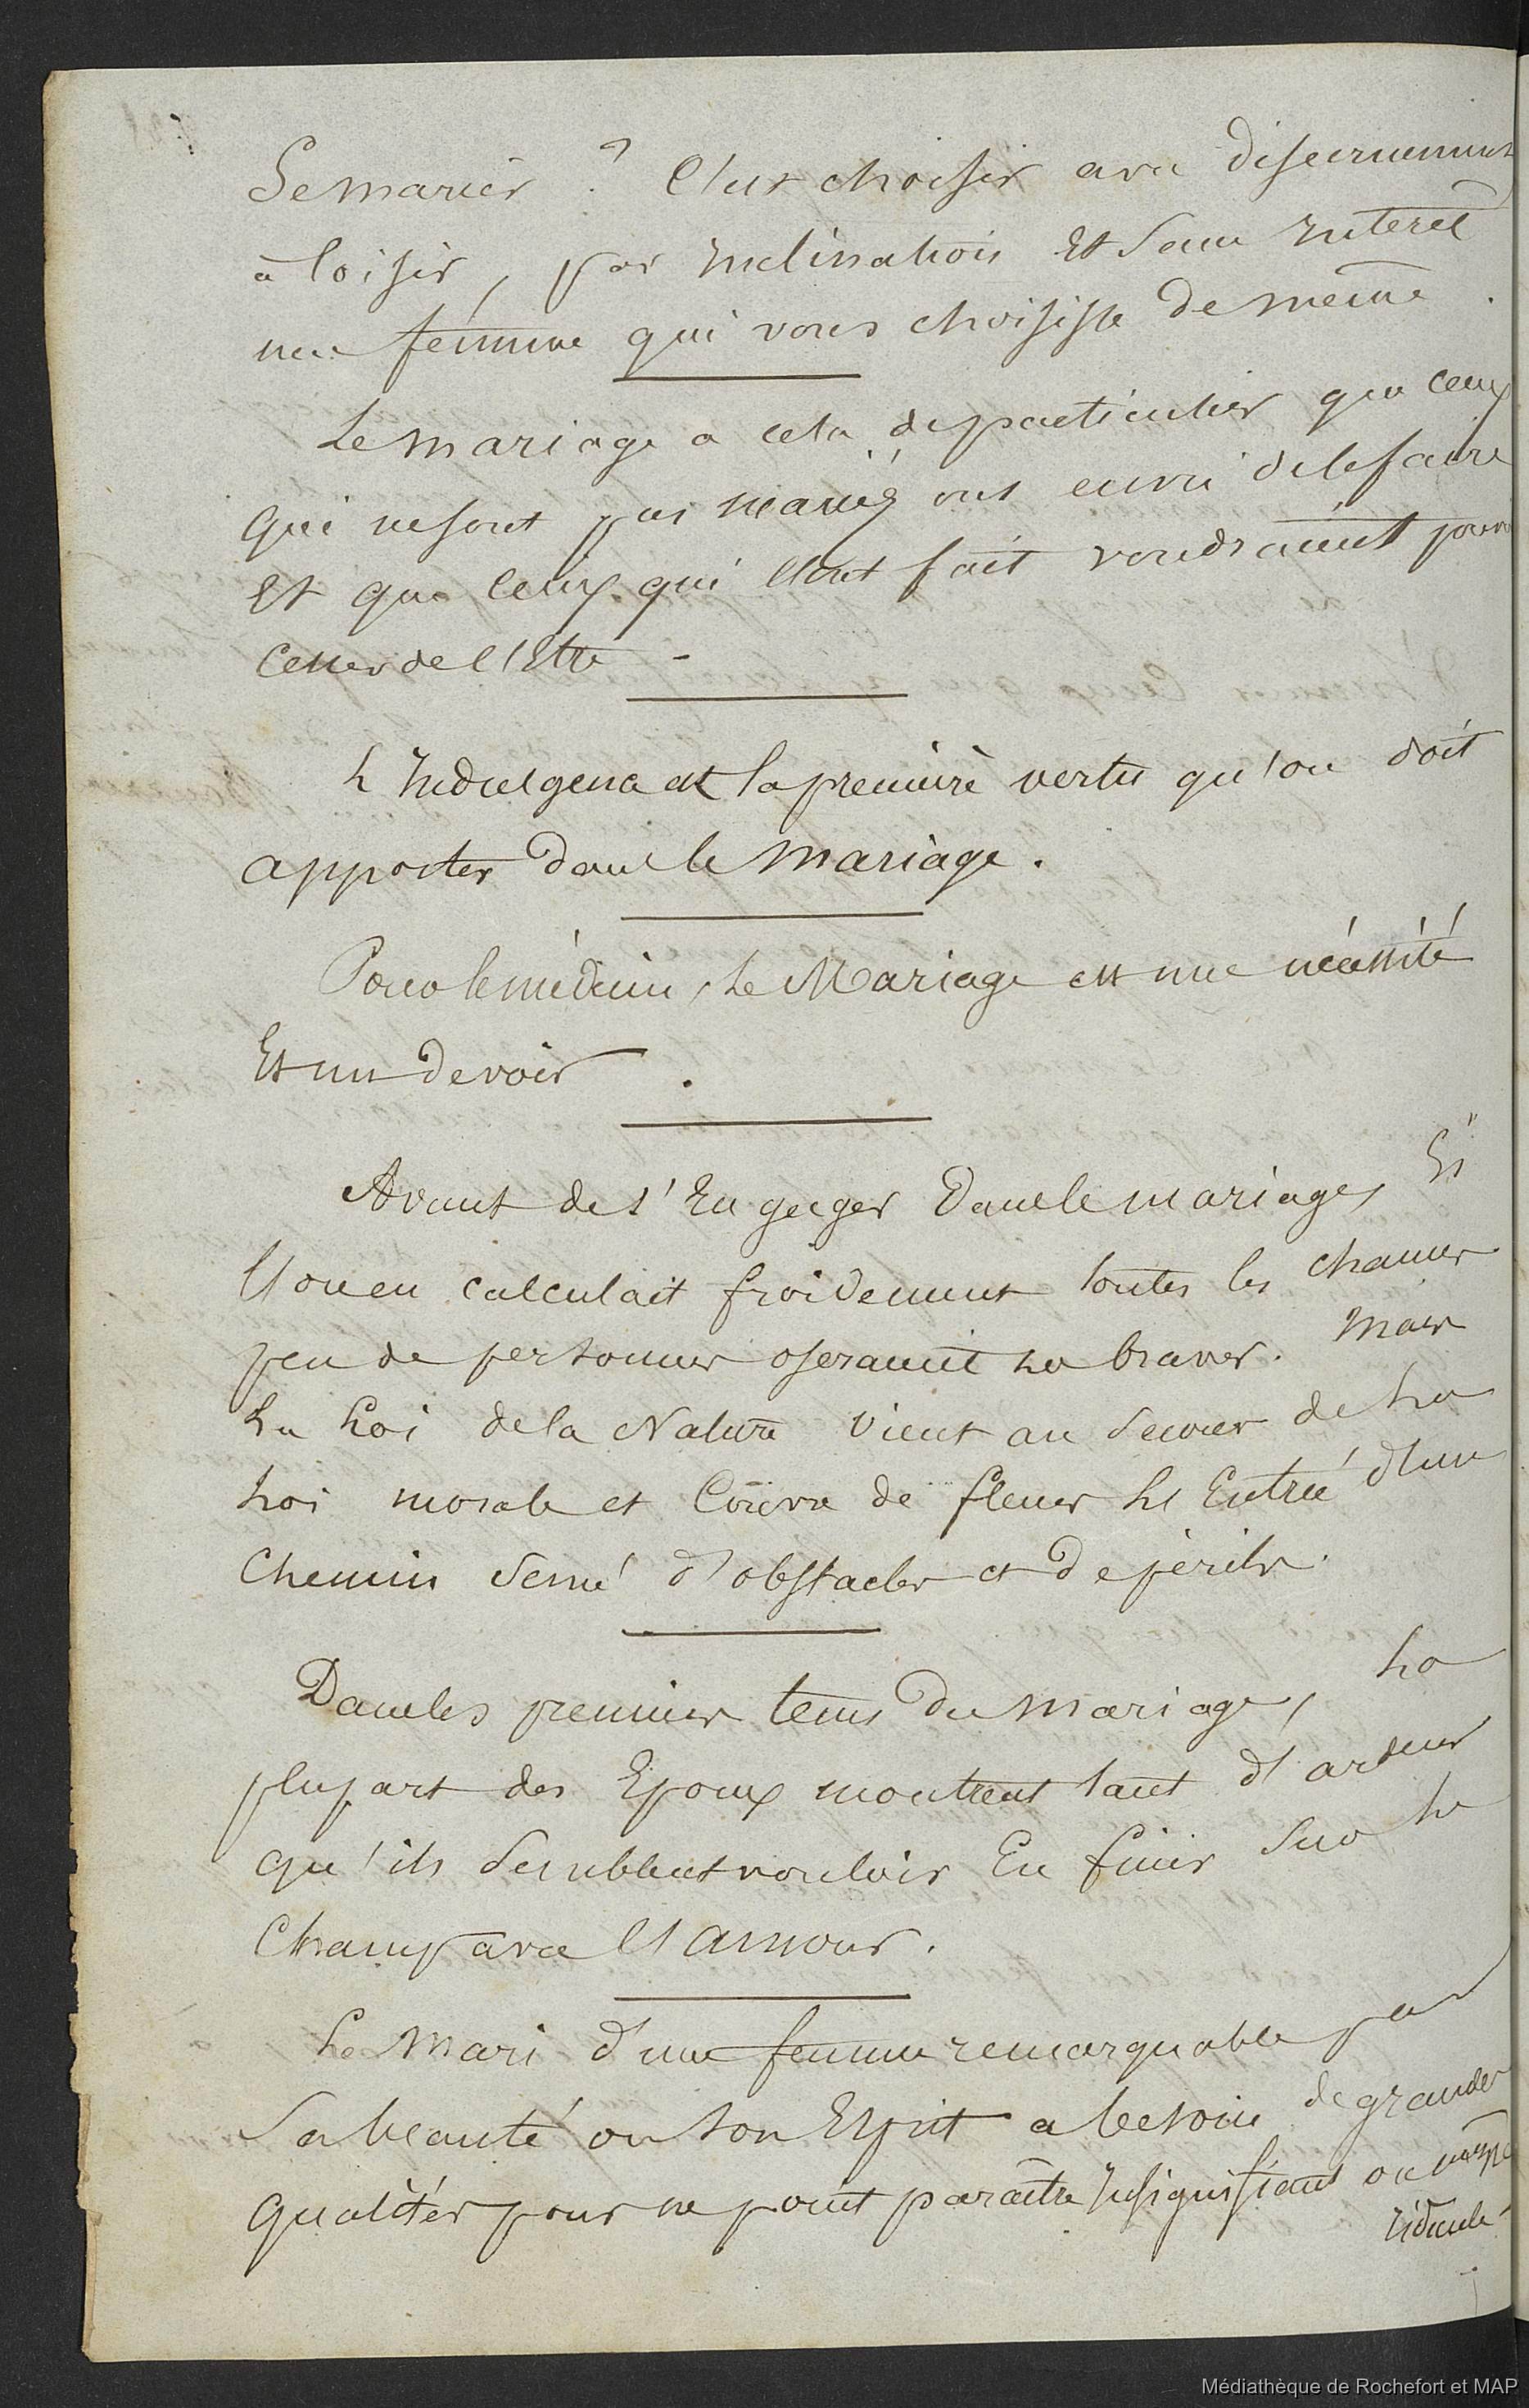 Se marier ? C'est choisir avec discernement
à loisir, par Inclination Et sans Intérêt
une femme qui vous choisisse de même.
Le mariage a cela de particulier que ceux
qui ne sont pas mariés ont envie de le faire
Et que ceux qui l'ont fait voudraient pouvoir
Cesser de l'Etre -
L'Indulgence est la première vertu qu'on doit
apporter dans le mariage.
Pour le médecin, le Mariage est une nécessité
Et un Devoir.
Avant de s'Engager Dans le mariage, Si
l'on en calculait froidement toutes les chances
peu de personnes oseraient les braver. Mais
La Loi de la Nature vient au secours de La
Loi morale et Couvre de fleurs l'Entrée d'un
Chemin semé d'obstacles et De périls.
Dans les premiers tems Du mariage, La
plupart des Epoux montrent tant d'ardeur
qu'ils semblent vouloir En finir sur le
Champ avec l'amour.
Le Mari d'une femme remarquable par
Sa beauté ou son Esprit a besoin de grandes
qualités pour ne point paraître Insignifiant ou même
ridicule.
Médiathèque de Rochefort et MAP